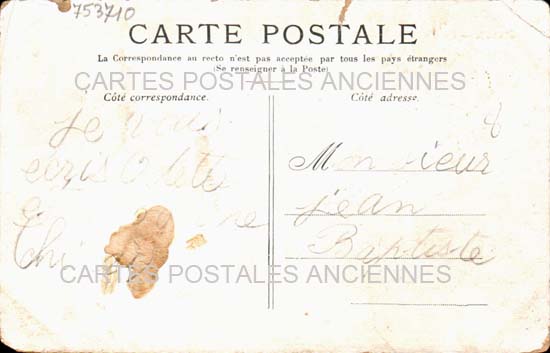 753710
CARTE POSTALE
La Correspondance au recto n'est pas acceptée par tous les pays étrangers
(Se renseigner à la Poste)
CARTES POSTALES ANCIENNES
Côté correspondance.
Côté adresse.
je vous
ecris
Monsieur
jean
Baptiste
CARTES POSTALES ANCIENNES